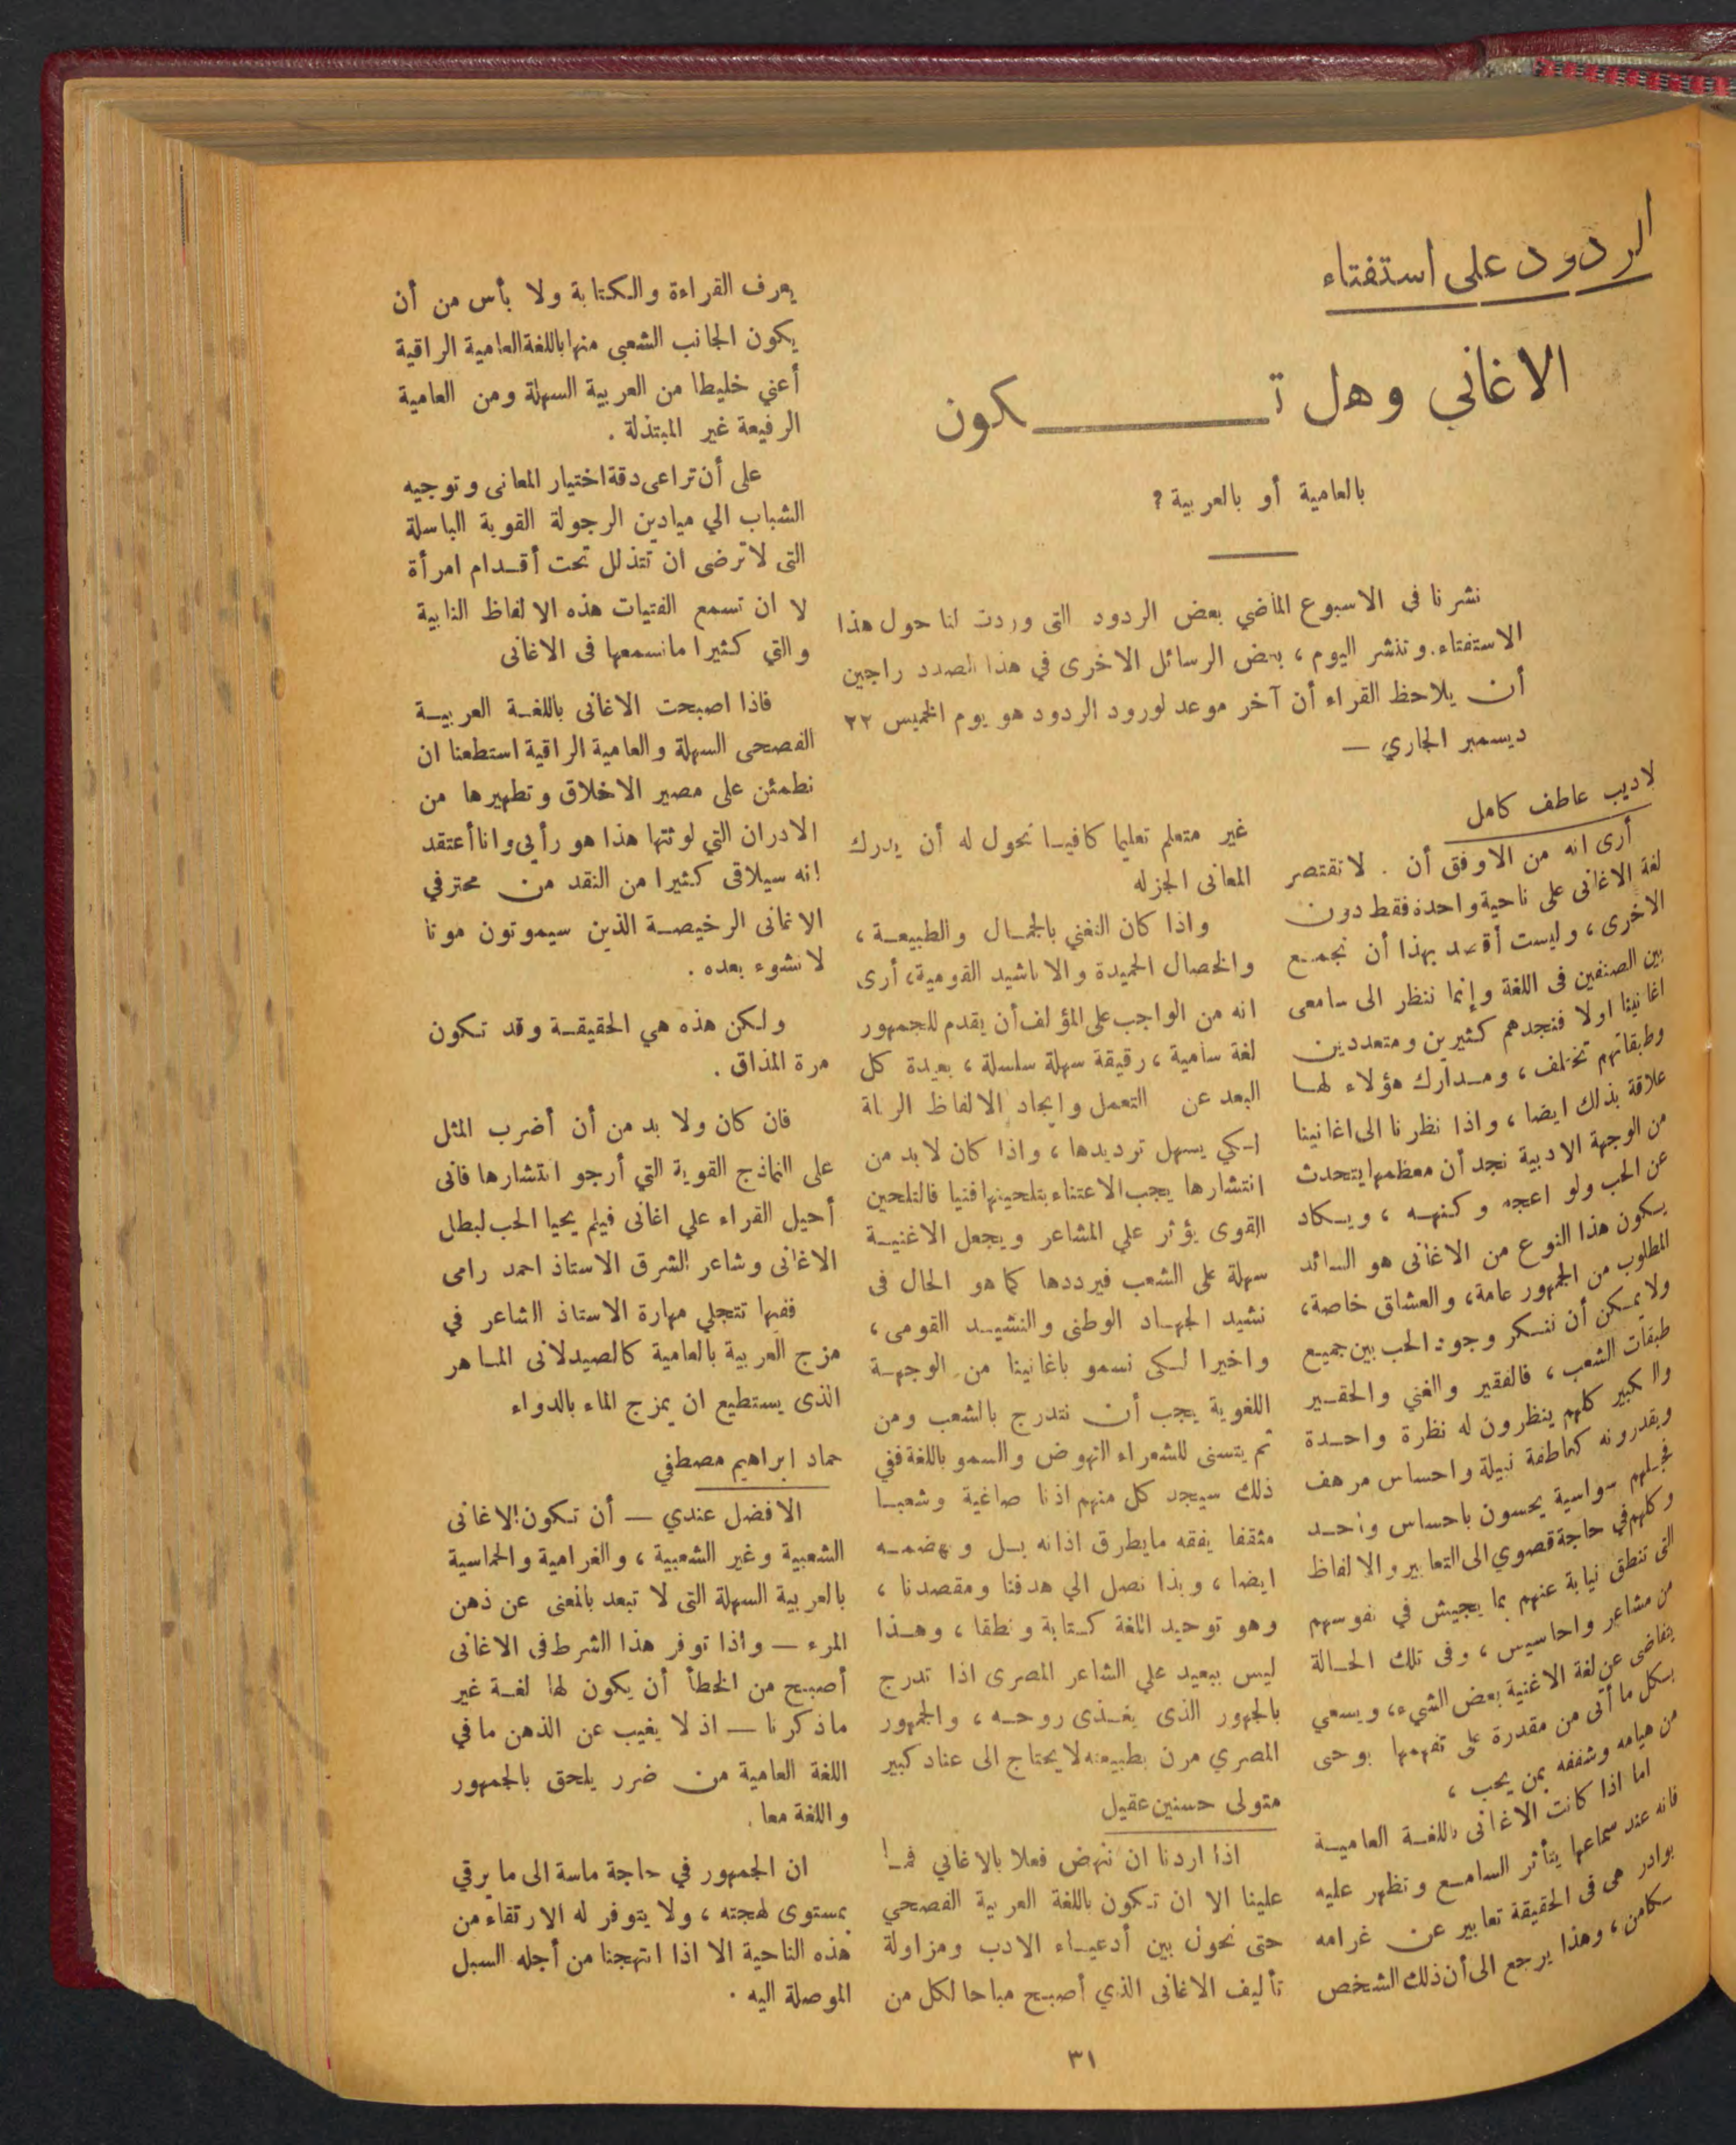 الردود على استفتاء
الاغاني وهل تـــــــكون
بالعامية أو بالعربية ?
نشرنا في الاسبوع الماضي بعض الردود التى وردت لنا حول هذا
الاستفتاء. وننشر اليوم ، بعض الرسائل الاخرى في هذا الصدد راجين
أن يلاحظ القراء أن آخر موعد لورود الردود هو يوم الخميس ٢٢
ديسمبر الجاري —
لاديب عاطف كامل
أرى انه من الاوفق أن . لا تقتصر
لغة الاغانى على ناحية واحدة فقط دون
الاخرى ، وليست أقصد بهذا أن نجمع
بين الصنفين فى اللغة وإنما ننظر الى سامعى
اغانينا اولا فنجدهم كثيرين ومتعددين
وطبقاتهم تختلف ، ومدارك هؤلاء لها
علاقة بذلك ايضا ، واذا نظرنا الى اغانينا
من الوجهة الادبية نجد أن معظمها يتحدث
عن الحب ولو اعجه وكنهه ، ويكاد
يكون هذا النوع من الاغانى هو السائد
المطلوب من الجمهور عامة ، والعشاق خاصة ،
ولا يمكن أن ننكر وجود الحب بين جميع
طبقات الشعب ، فالفقير والغني والحقير
والكبير كلهم ينظرون له نظرة واحدة
ويقدرونه كعاطفة نبيلة واحساس مرهف
فجلهم سواسية يحسون باحساس واحد
وكلهم في حاجة قصوي الى التعابير والالفاظ
التى تنطق نيابة عنهم بما يجيش في نفوسهم
من مشاعر واحاسيس ، وفى تلك الحالة
يتغاضى عن لغة الاغنية بعض الشيء ، ويسعي
بكل ما أتى من مقدرة على تفهمها بوحى
من هيامه وشغفه بمن يحب ،
اما اذا كانت الاغانى باللغة العامية
فانه عند سماعها يتأثر السامع وتظهر عليه
بوادر هى فى الحقيقة تعابير عن غرامه
سكامن ، وهذا يرجع الى أن ذلك الشخص
غير متعلم تعليما كافيا تحول له أن يدرك
المعانى الجزله
واذا كان التغني بالجمال والطبيعة ،
والخصال الحميدة والاناشيد القومية ، أرى
انه من الواجب على المؤلف أن يقدم للجمهور
لغة سامية ، رقيقة سهلة سلسلة ، بعيدة كل
البعد عن التعمل وايجاد الالفاظ
لكي يسهل ترديدها ، واذا كان لابد من
انتشارها يجب الاعتناء بتلحينها فنيا فالتلحين
القوى يؤثر علي المشاعر ويجعل الاغنية
سهلة على الشعب فيرددها كما هو الحال فى
نشيد الجهاد الوطنى والنشيد القومى ،
واخيرا لكى نسمو باغانينا من الوجهة
اللغوية يجب أن نتدرج بالشعب ومن
ثم يتسنى للشعراء النهوض والسمو باللغة ففي
ذلك سيجد كل منهم اذنا صاغية وشعبا
مثقفا يفقه مايطرق اذانه بل ويهضمه
ايضا ، وبذا نصل الي هدفنا ومقصدنا ،
وهو توحيد اللغة كتابة ونطقا ، وهذا
ليس ببعيد علي الشاعر المصرى اذا تدرج
بالجهور الذى يغذى روحه ، والجمهور
المصري مرن بطبيعته لا يحتاج الى عناد كبير
متولى حسنين عقيل
اذا اردنا ان ننهض فعلا بالاغاني فما
علينا الا ان تكون باللغة العربية الفصحي
حتى نحول بين أدعياء الادب ومزاولة
تأليف الاغانى الذي أصبح مباحا لكل من
يعرف القراءة والكتابة ولا بأس من أن
يكون الجانب الشعبي منها باللغة العامية الراقية
أعني خليطا من العربية السهلة ومن العامية
الرفيعة غير المبتذلة .
على أن تراعى دقة اختيار المعانى وتوجيه
الشباب الي ميادين الرجولة القوية الباسلة
التى لا ترضى ان تتذلل تحت أقدام امرأة
لا ان تسمع الفتيات هذه الالفاظ النابية
والتي كثيرا مانسمعها فى الاغانى
فاذا اصبحت الاغانى باللغة العربية
الفصحى السهلة والعامية الراقية استطعنا ان
نطمئن على مصير الاخلاق وتطهيرها من
الادران التي لوثتها هذا هو رأيى وانا أعتقد
انه سيلاقى كثيرا من النقد من محترفي
الاغانى الرخيصة الذين سيموتون موتا
لا نشوء بعده .
ولكن هذه هي الحقيقة وقد تكون
مرة المذاق .
فان كان ولا بد من أن أضرب المثل
على النماذج القوية التي أرجو انتشارها فانى
أحيل القراء علي اغانى فيلم يحيا الحب لبطل
الاغانى وشاعر الشرق الاستاذ احمد رامى
ففيها تتجلي مهارة الاستاذ الشاعر في
مزج العربية بالعامية كالصيدلانى الماهر
الذى يستطيع ان يمزج الماء بالدواء
حماد ابراهيم مصطفي
الافضل عندي — أن تكون الاغانى
الشعبية وغير الشعبية ، والغرامية والحماسية
بالعربية السهلة التى لا تبعد بالمعنى عن ذهن
المرء — واذا توفر هذا الشرط فى الاغانى
أصبح من الخطأ أن يكون لها لغة غير
ماذكرنا — اذ لا يغيب عن الذهن ما في
اللغة العامية من ضرر يلحق بالجمهور
واللغة معا .
ان الجمهور في حاجة ماسة الى ما يرقي
بمستوى لهجته ، ولا يتوفر له الارتقاء من
هذه الناحية الا اذا انتهجنا من أجله السبل
الموصلة اليه .
٣١